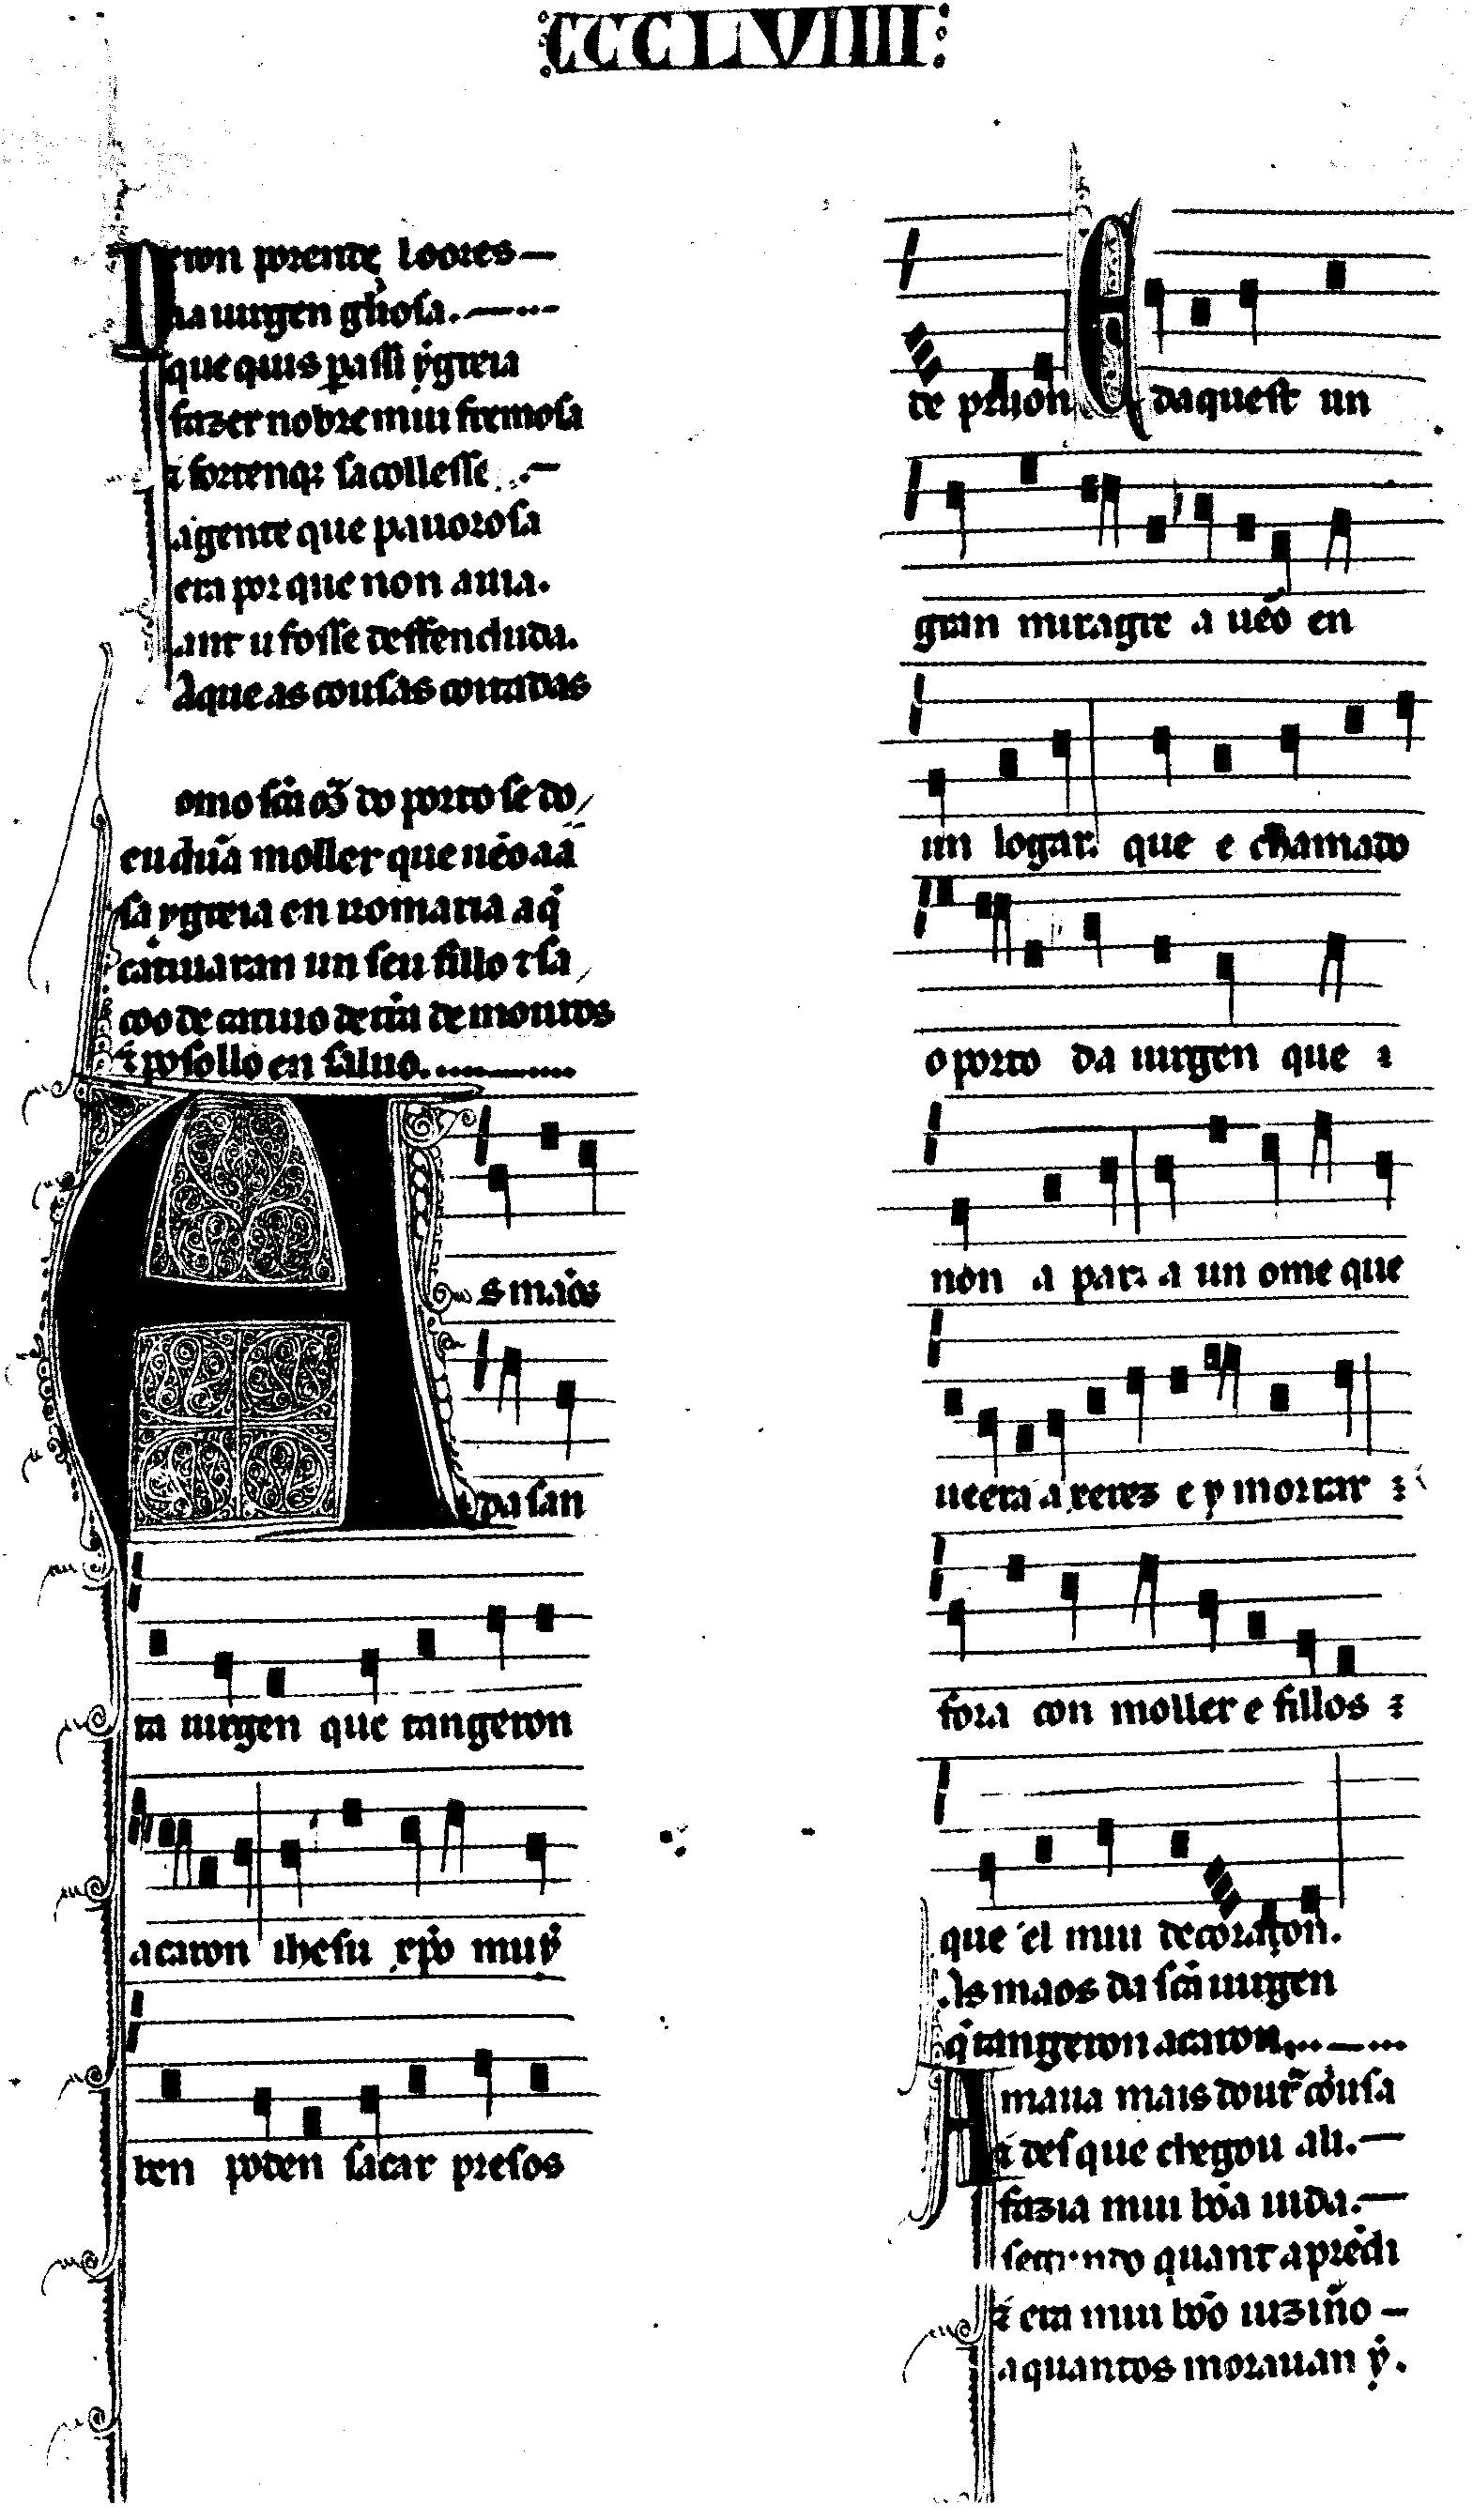 CCCLVIIII
Deron porende loores—
na uirgen gl̃iosa.—
que quis p̱assi ẏgreia
fazer nobre mui fremosa
⁊ forten q̃ sacollesse
.a gente que pauorosa
era por que non auia.
ant u fosse deffenduda.
A que as cousas coitadas
omo sc̃a Oʒ do porto se do
eu dũa moller que uẽo aa
sa ygreia en romaria a q̃
catiuaran un seu fillo ⁊ sa
coo de catiuo de tr̃a de mouros
⁊ poso llo en saluo.
As maõs
da san
ta uirgen que tangeron
acaron ihesu xp̃o muẏ
ben poden sacar presos
de prijon E daquest un
gran miragre a uẽo en
un logar. que e chamado
o porto da uirgen que ⁊
non a par. a un ome que
ueera a xerez e y morrar ⁊
fora con moller e fillos ⁊
que el mui de coraçon.
As maos da sc̃a uirgen
q̃ tangeron acaron
Amaua mais doutr̃ cousa
⁊ des que chegou ali.—
fazia mui bõa uida.—
segundo quant aprẽdi
⁊ era mui bõo uizin̄o —
a quantos morauan ẏ.